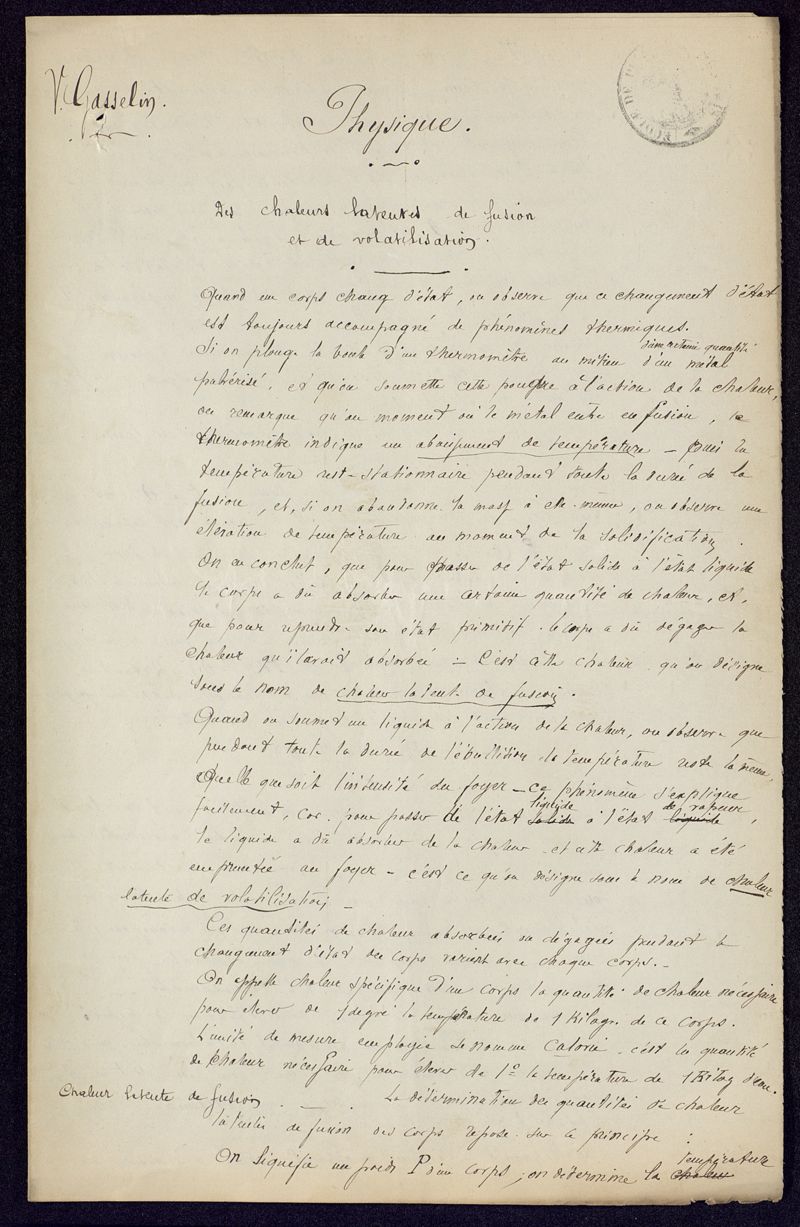 V. Gasselin.
ÉCOLE DE
Physique.
Des chaleurs latentes de fusion
et de volatilisation.
Quand un corps change d'état, on observe que ce changement d'état
est toujours accompagné de phénomènes thermiques.
d'une certaine quantité
Si on plonge la boule d'un thermomètre au milieu d'un métal
pulvérisé, et qu'on soumette cette poudre à l'action de la chaleur,
on remarque qu'au moment où le métal entre en fusion, le
thermomètre indique un abaissement de température – puis la
température reste stationnaire pendant toute la durée de la
fusion, et, si on abandonne la masse à elle-même, on observe une
élévation de température au moment de la solidification.
On en conclut, que pour passer de l'état solide à l'état liquide
le corps a dû absorber une certaine quantité de chaleur, et,
que pour reprendre son état primitif le corps a dû dégager la
chaleur qu'il avait absorbée – C'est cette chaleur qu'on désigne
sous le nom de chaleur latente de fusion.
Quand on soumet un liquide à l'action de la chaleur, on observe que
pendant toute la durée de l'ébullition la température reste la même,
quelle que soit l'intensité du foyer – ce phénomène s'explique
liquide de vapeur
facilement, car pour passer de l'état solide à l'état liquide,
le liquide a dû absorber de la chaleur et cette chaleur a été
empruntée au foyer – c'est ce qu'on désigne sous le nom de chaleur
latente de volatilisation –
Ces quantités de chaleur absorbées ou dégagées pendant le
changement d'état des corps varient avec chaque corps. –
On appelle chaleur spécifique d'un corps la quantité de chaleur nécessaire
pour élever de 1 degré la température de 1 Kilogr. de ce corps.
L'unité de mesure employée se nomme Calorie c'est la quantité
de chaleur nécessaire pour élever de 1° la température de 1 Kilog d'eau.
Chaleur latente de fusion. – La détermination des quantités de chaleur
latentes de fusion des corps repose sur le principe :
température
On liquéfie un poids P d'un corps ; on détermine la chaleur